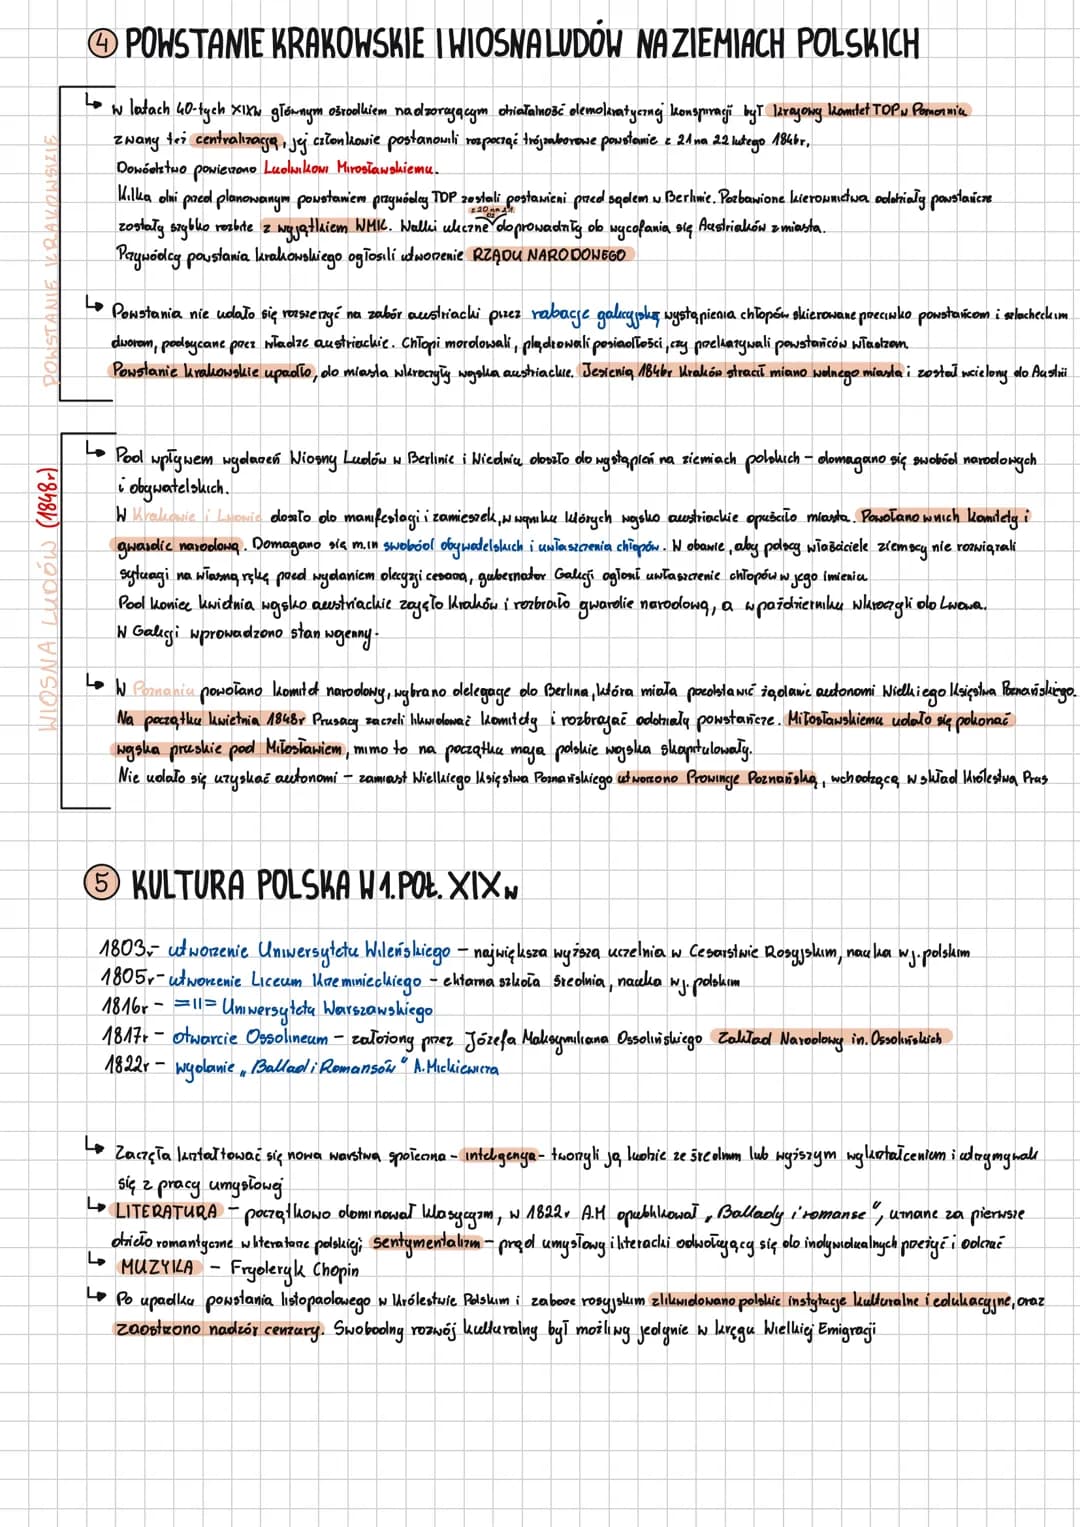 ④ POWSTANIE KRAKOWSKIE I WIOSNA LUDÓW NA ZIEMIACH POLSKICH
POWSTANIE KRAKOWSKIE
↳ w latach 40-tych XIXw głównym ośrodkiem nadzorującym działalność demokratycznej konspiracji był krajowy komitet TDP w Poznaniu
znany też centralizacją, jej członkowie postanowili rozpocząć trójzaborowe powstanie z 21 na 22 lutego 1846r,
Dowództwo powierzono Ludwikowi Mirosławskiemu.
Kilka dni przed planowanym powstaniem przywódcy TDP zostali postawieni przed sądem w Berlinie. Pozbawione kierownictwa oddziały powstańcze
z 20 na 21
02
zostały szybko rozbite z wyjątkiem WMK. Walki uliczne doprowadziły do wycofania się Austriaków z miasta.
Przywódcy powstania krakowskiego ogłosili utworzenie RZĄDU NARODOWEGO
↳ Powstania nie udało się rozszerzyć na zabór austriacki przez rabację galicyjską wystąpienia chłopów skierowane przeciwko powstańcom i szlacheckim
dworom, podsycane przez władze austriackie. Chłopi mordowali, plądrowali posiadłości, czy przekazywali powstańców władzom.
Powstanie krakowskie upadło, do miasta wkroczyły wojska austriackie. Jesienią 1846r Kraków stracił miano wolnego miasta i został wcielony do Austrii
WIOSNA LUDÓW (1848r)
↳ Pod wpływem wydarzeń Wiosny Ludów w Berlinie i Wiedniu doszło do wystąpień na ziemiach polskich – domagano się swobód narodowych
i obywatelskich.
W Krakowie i Lwowie doszło do manifestacji i zamieszek, w wyniku których wojsko austriackie opuściło miasta. Powołano w nich komitety i
gwardię narodową. Domagano się m.in swobód obywatelskich i uwłaszczenia chłopów. W obawie, aby polscy właściciele ziemscy nie rozwiązali
sytuacji na własną rękę przed wydaniem decyzji cesarza, gubernator Galicji ogłosił uwłaszczenie chłopów w jego imieniu
Pod koniec kwietnia wojsko austriackie zajęło Kraków i rozbroiło gwardię narodową, a w październiku wkroczyli do Lwowa.
W Galicji wprowadzono stan wojenny.
↳ W Poznaniu powołano komitet narodowy, wybrano delegację do Berlina, która miała przedstawić żądanie autonomi Wielkiego Księstwa Poznańskiego.
Na początku kwietnia 1848r Prusacy zaczeli likwidować komitety i rozbrajać oddziały powstańcze. Miłosławskiemu udało się pokonać
wojska pruskie pod Miłosławiem, mimo to na początku maja polskie wojska skapitulowały.
Nie udało się uzyskać autonomi – zamiast Wielkiego Księstwa Poznańskiego utworzono Prowincję Poznańską, wchodzącą w skład Królestwa Prus
⑤ KULTURA POLSKA W 1.POŁ. XIXw
1803r- utworzenie Uniwersytetu Wileńskiego – największa wyższa uczelnia w Cesarstwie Rosyjskim, nauka w j. polskim
1805r- utworzenie Liceum Krzeminieckiego – elitarna szkoła średnia, nauka w j. polskim
1816r – =||= Uniwersytetu Warszawskiego
1817r – otwarcie Ossolineum – założony przez Józefa Maksymiliana Ossolińskiego Zakład Narodowy im. Ossolińskich
1822r – wydanie „Ballad i Romansów" A.Mickiewicza
↳ Zaczęła kształtować się nowa warstwa społeczna – inteligencja – tworzyli ją ludzie ze średnim lub wyższym wykształceniem i utrzymywali
się z pracy umysłowej
↳ LITERATURA – początkowo dominował klasycyzm, w 1822r A.M opublikował „Ballady i romanse", uznane za pierwsze
dzieło romantyczne w literaturze polskiej; sentymentalizm – prąd umysłowy i literacki odwołujący się do indywidualnych przeżyć i odczuć
↳ MUZYKA – Fryderyk Chopin
↳ Po upadku powstania listopadowego w Królestwie Polskim i zaborze rosyjskim zlikwidowano polskie instytucje kulturalne i edukacyjne, oraz
zaostrzono nadzór cenzury. Swobodny rozwój kulturalny był możliwy jedynie w kręgu Wielkiej Emigracji